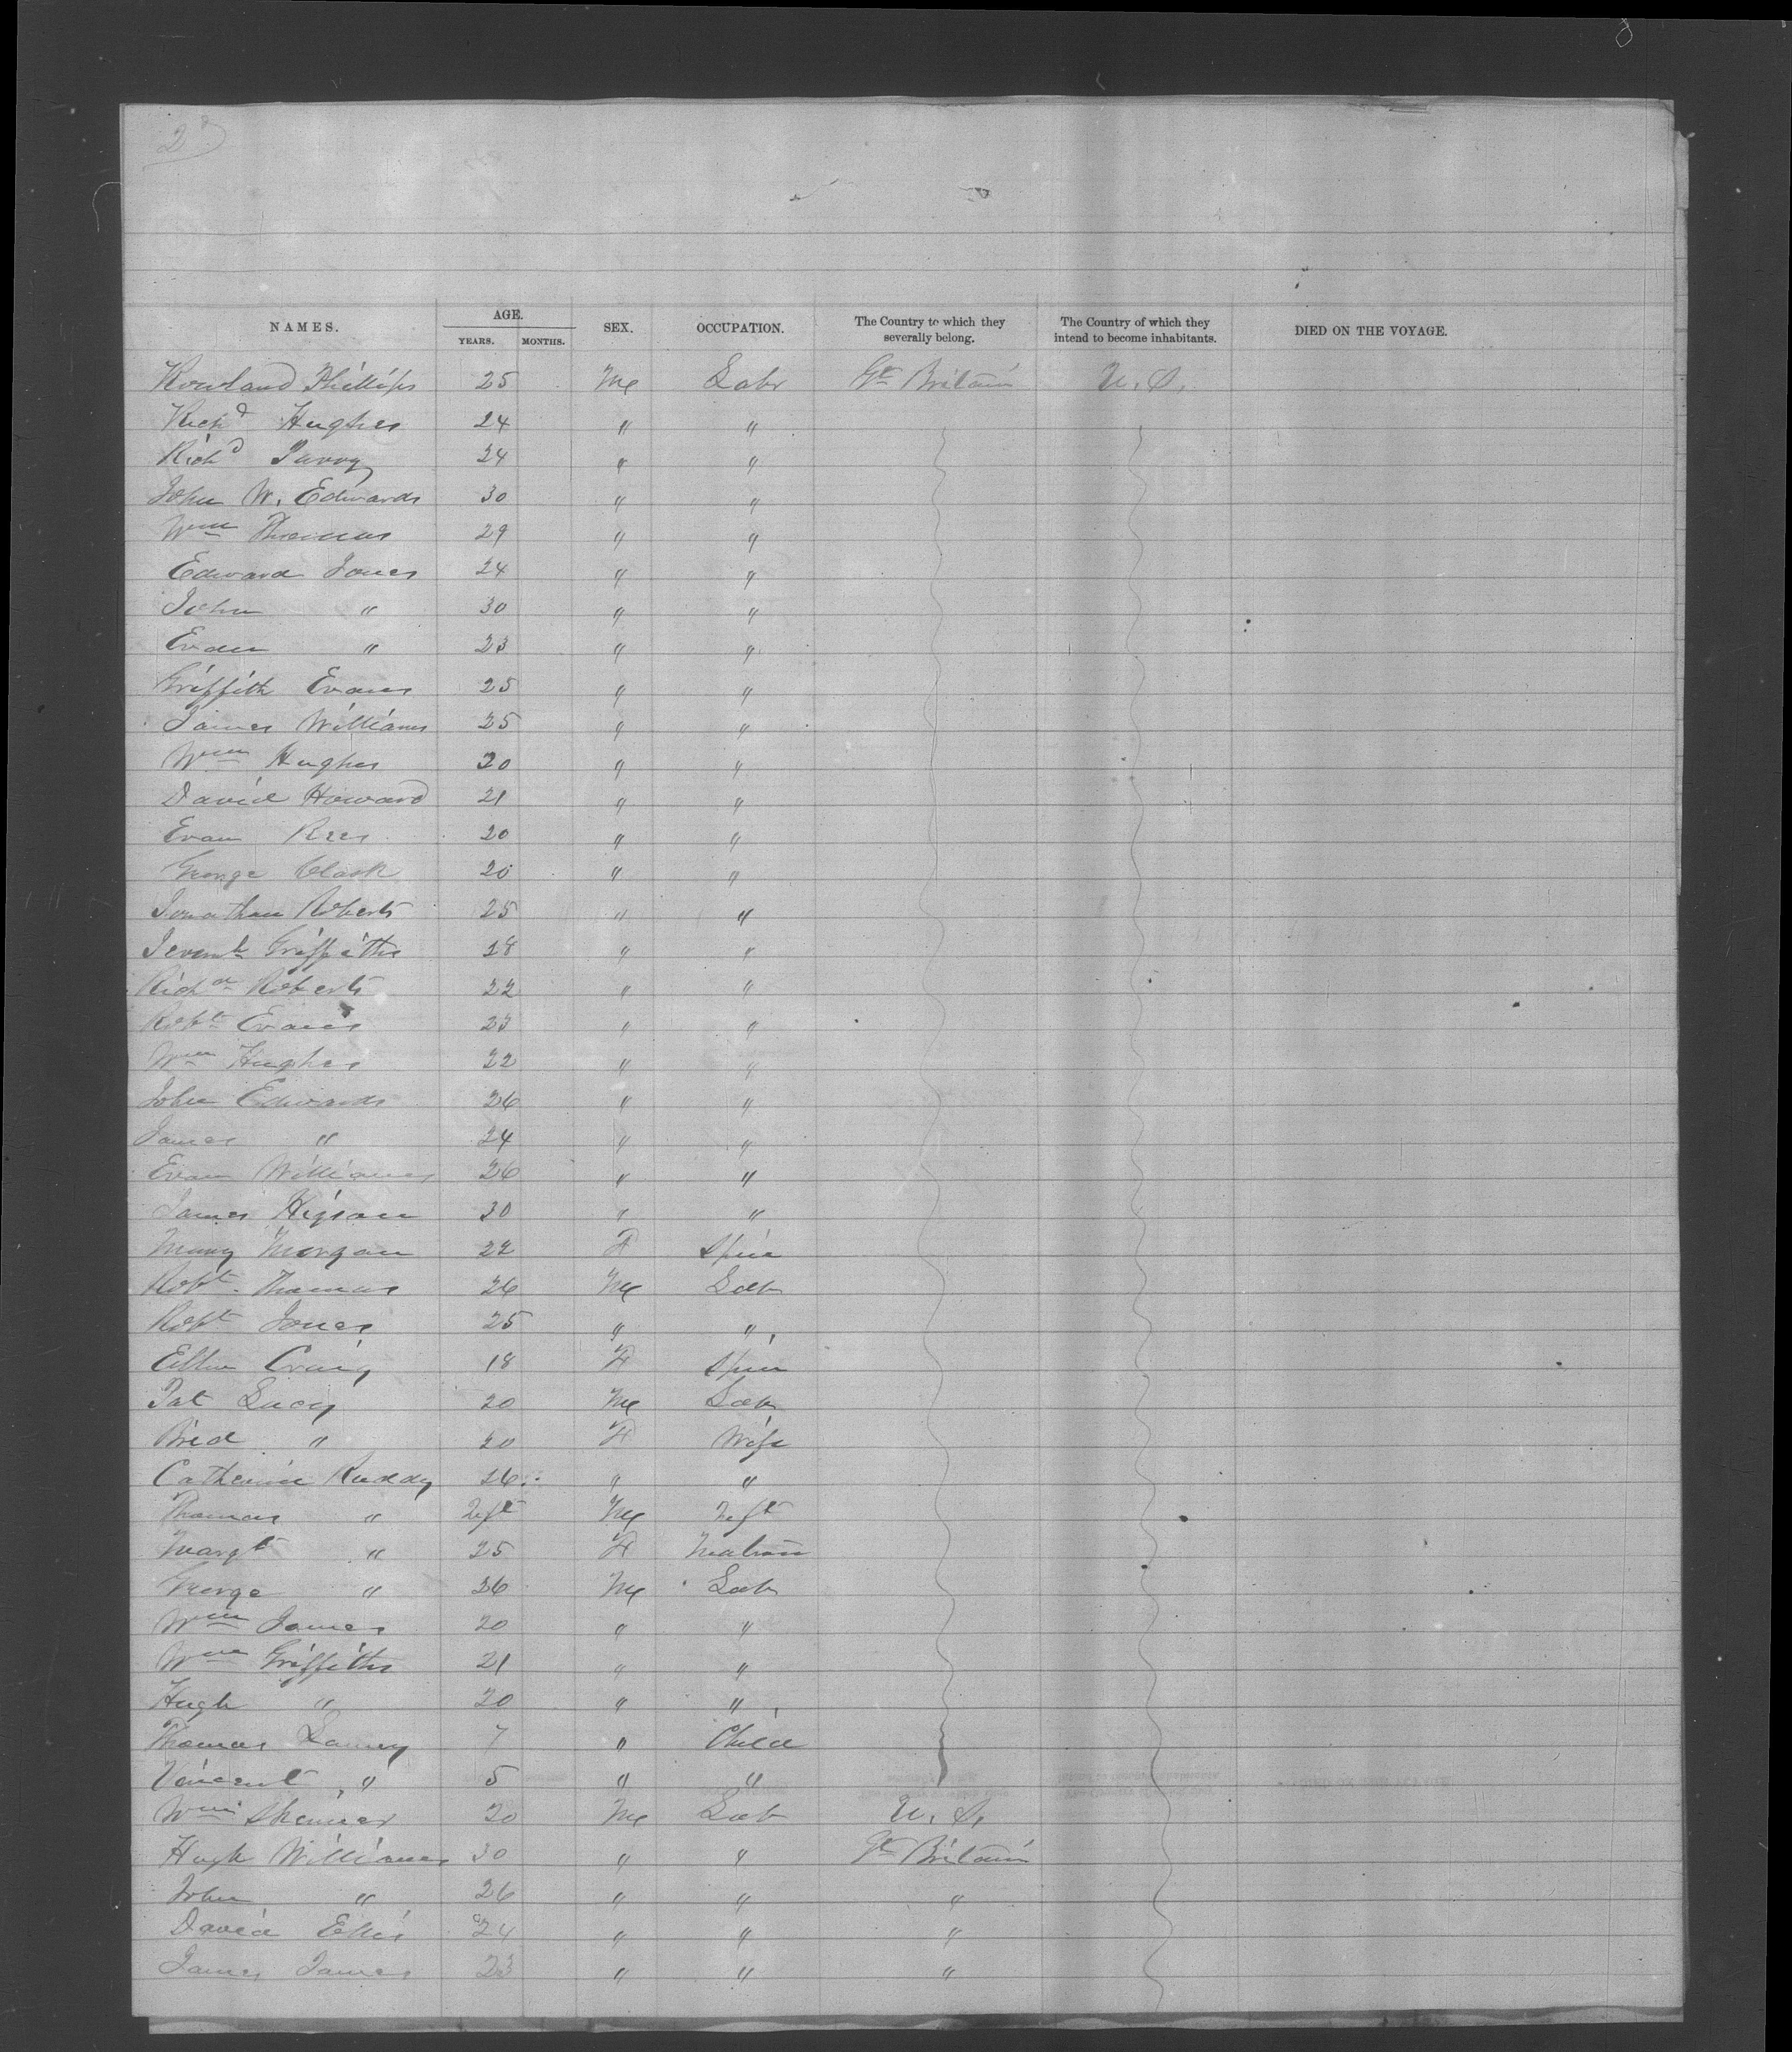 8
2
NAMES. AGE. SEX. OCCUPATION. The Country to which they severally belong. The Country of which they intend to become inhabitants. DIED ON THE VOYAGE.
YEARS. MONTHS.
Rowland Phillips 25 M Labr Gt Britain U. S.
Richd Hughes 24 " "
Richd Parry 24 " "
John W. Edwards 30 " "
Wm Thomas 29 " "
Edward Jones 24 " "
John " 30 " "
Evan " 23 " "
Griffith Evans 25 " "
James Williams 25 " "
Wm Hughes 20 " "
David Howard 21 " "
Evan Rees 20 " "
George Clark 20 " "
Jonathan Roberts 25 " "
Griffiths 18 " "
Richd Roberts 22 " "
Robt Evans 23 " "
Wm Hughes 22 " "
John Edwards 26 " "
James " 24 " "
Evan Williams 26 " "
James Higson 30 " "
Mary Morgan 22 F Spin
Robt Thomas 26 M Lab
Robt Jones 25 " "
Ellen Craig 18 F Spin
Pat Lucy 20 M Lab
Brid " 20 F Wife
Catherine Ruddy 26 " "
Thomas " Inft M Inft
Margt " 25 F Matron
George " 36 M Lab
Wm James 20 " "
Wm Griffiths 21 " "
Hugh " 20 " "
Thomas 7 " Child
Vincent " 5 " "
Wm 20 M Lab U. S.
Hugh Williams 30 " " Gt Britain
John " 26 " " "
David Ellis 24 " " "
James James 23 " " "